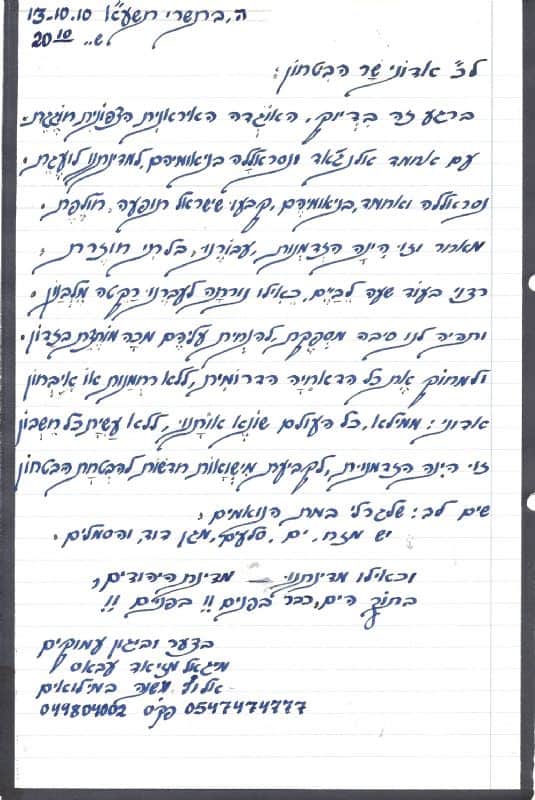 ה, ב׳תשרי תשע״א 13.10.10
ש.. 20 10
לכ׳ אדוני שר הביטחון:
ברגע זה בדיוק, האוגדה האיראנית הצפונית חוגגת.
עם אחמד ונסראללה בניאומיהם, למדינתנו לועגת.
נסראללה ואחמד, בניאומיהם, קבעו שישראל תופעה חולפת.
מאחור וזוי הינה הזדמנות, עבורנו, בלתי חוזרת
רדני בעוד שעה לביים, כאילו נורתה לעברנו רקטה מלבנון.
ותהיה לנו סיבה מספקת, להנחית עליהם מכה מוחצת בזדון.
ולמחוק את כל הדאחיה הדרומית, ללא רחמנות או איבחון
אדוני: ממילא, כל העולם שונא אותנו, ללא עשית כל חשבון
זוי הינה הזדמנויות, לקביעת מישוואות חדשות להבטחת הבטחון
שים לב: שלגרלי במת הנואמים,
יש מזח, ים, סלעים, מגן דוד, והסמלים.
וכאילו מדינתנו — מדינת היהודים,
בתוך הים, כבר בפנים!! בפניים!!
בצער וביגון עמוקים
מיגאל עבאס
אלוף משנה במילואים
0547474777 פקס 049804062